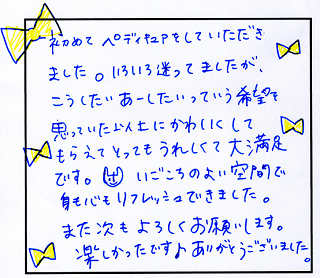 初めて ペディキュアをしていただき
ました。いろいろ迷ってましたが、
こうしたいあーしたいっていう希望を
思っていた以上にかわいくして
もらえてとってもうれしくて大満足
です。 いごこちのよい空間で
身も心もリフレッシュできました。
また次もよろしくお願いします。
楽しかったです♪ ありがとうございました。